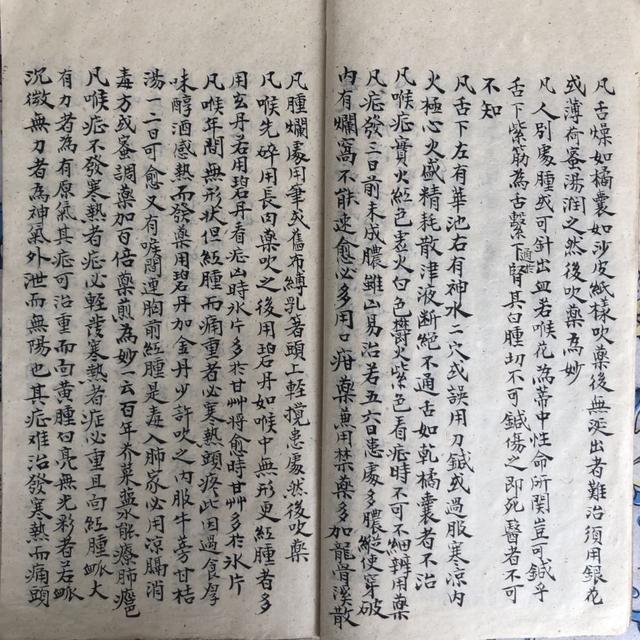 凡舌燥如橘囊如沙皮紙樣吹藥後無涎出者難治須用銀花
或薄荷蜜湯潤之然後吹藥為妙
凡人別處腫或可針出血若喉花為蒂中性命所関豈可鍼乎
舌下紫筋為舌繫下通腎其白腫切不可鍼傷之即死醫者不可
不知
凡舌下左有華池右有神水二穴或誤用刀鍼或過服寒涼内
火極心火盛精耗散津液斷絕不通舌如乾橘囊者不治
凡喉症實火紅色虛火白色欝火紫色看症時不可不細辨用藥
凡症發三日前未成膿雖山易治若五六日患處多膿縱使穿破
内有爛窩不能速愈必多用口疳藥兼用禁藥多加龍骨漫散
凡腫爛處用筆或舊布縛乳箸頭上輕攪患處然後吹藥
凡喉先碎用長田藥吹之後用碧丹如喉中無形更紅腫者多
用玄丹名用碧丹看症山時氷片多於甘艸將愈時甘艸多於氷片
凡喉年間無形狀但紅腫而痛重者必寒熱頭疼此因過食厚
味醇酒感熱而發藥用碧丹加金丹少許吹之内服牛蒡甘桔
湯一二日可愈又有喉間連胸前紅腫是毒入肺家必用涼腸消
毒方或蜜調藥加百倍藥煎為妙一云百年芥菜滷水能療肺癰
凡喉症不發寒熱者症必輕發寒熱者症必重且面紅腫脈大
有力者為有原氣其症可治重而面黄腫白亮無光彩者若脈
沉微無力者為神氣外泄而無陽也其症难治發寒熱而痛頭